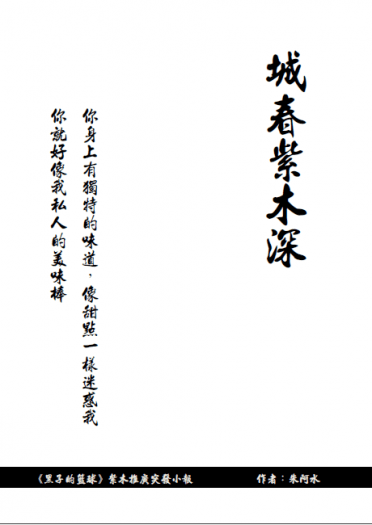 城春紫木深
你身上有獨特的味道，像甜點一樣迷惑我
你就好像我私人的美味棒
《黑子的籃球》紫木推廣突發小報
作者：朱阿水